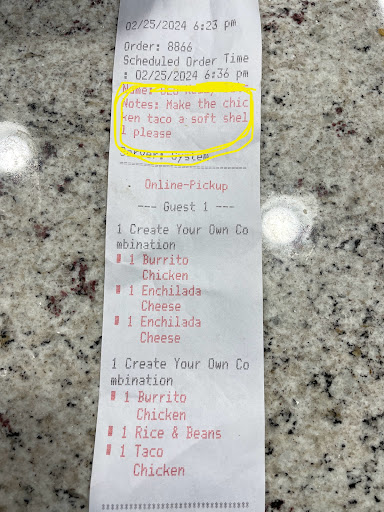 02/25/2024 6:23 pm
Order: 8866
Scheduled Order Time
: 02/25/2024 6:36 pm
Name:
Notes: Make the chic
ken taco a soft shel
l please
Server: System
Online-Pickup
--- Guest 1 ---
1 Create Your Own Co
mbination
1 Burrito
Chicken
1 Enchilada
Cheese
1 Enchilada
Cheese
1 Create Your Own Co
mbination
1 Burrito
Chicken
1 Rice & Beans
1 Taco
Chicken